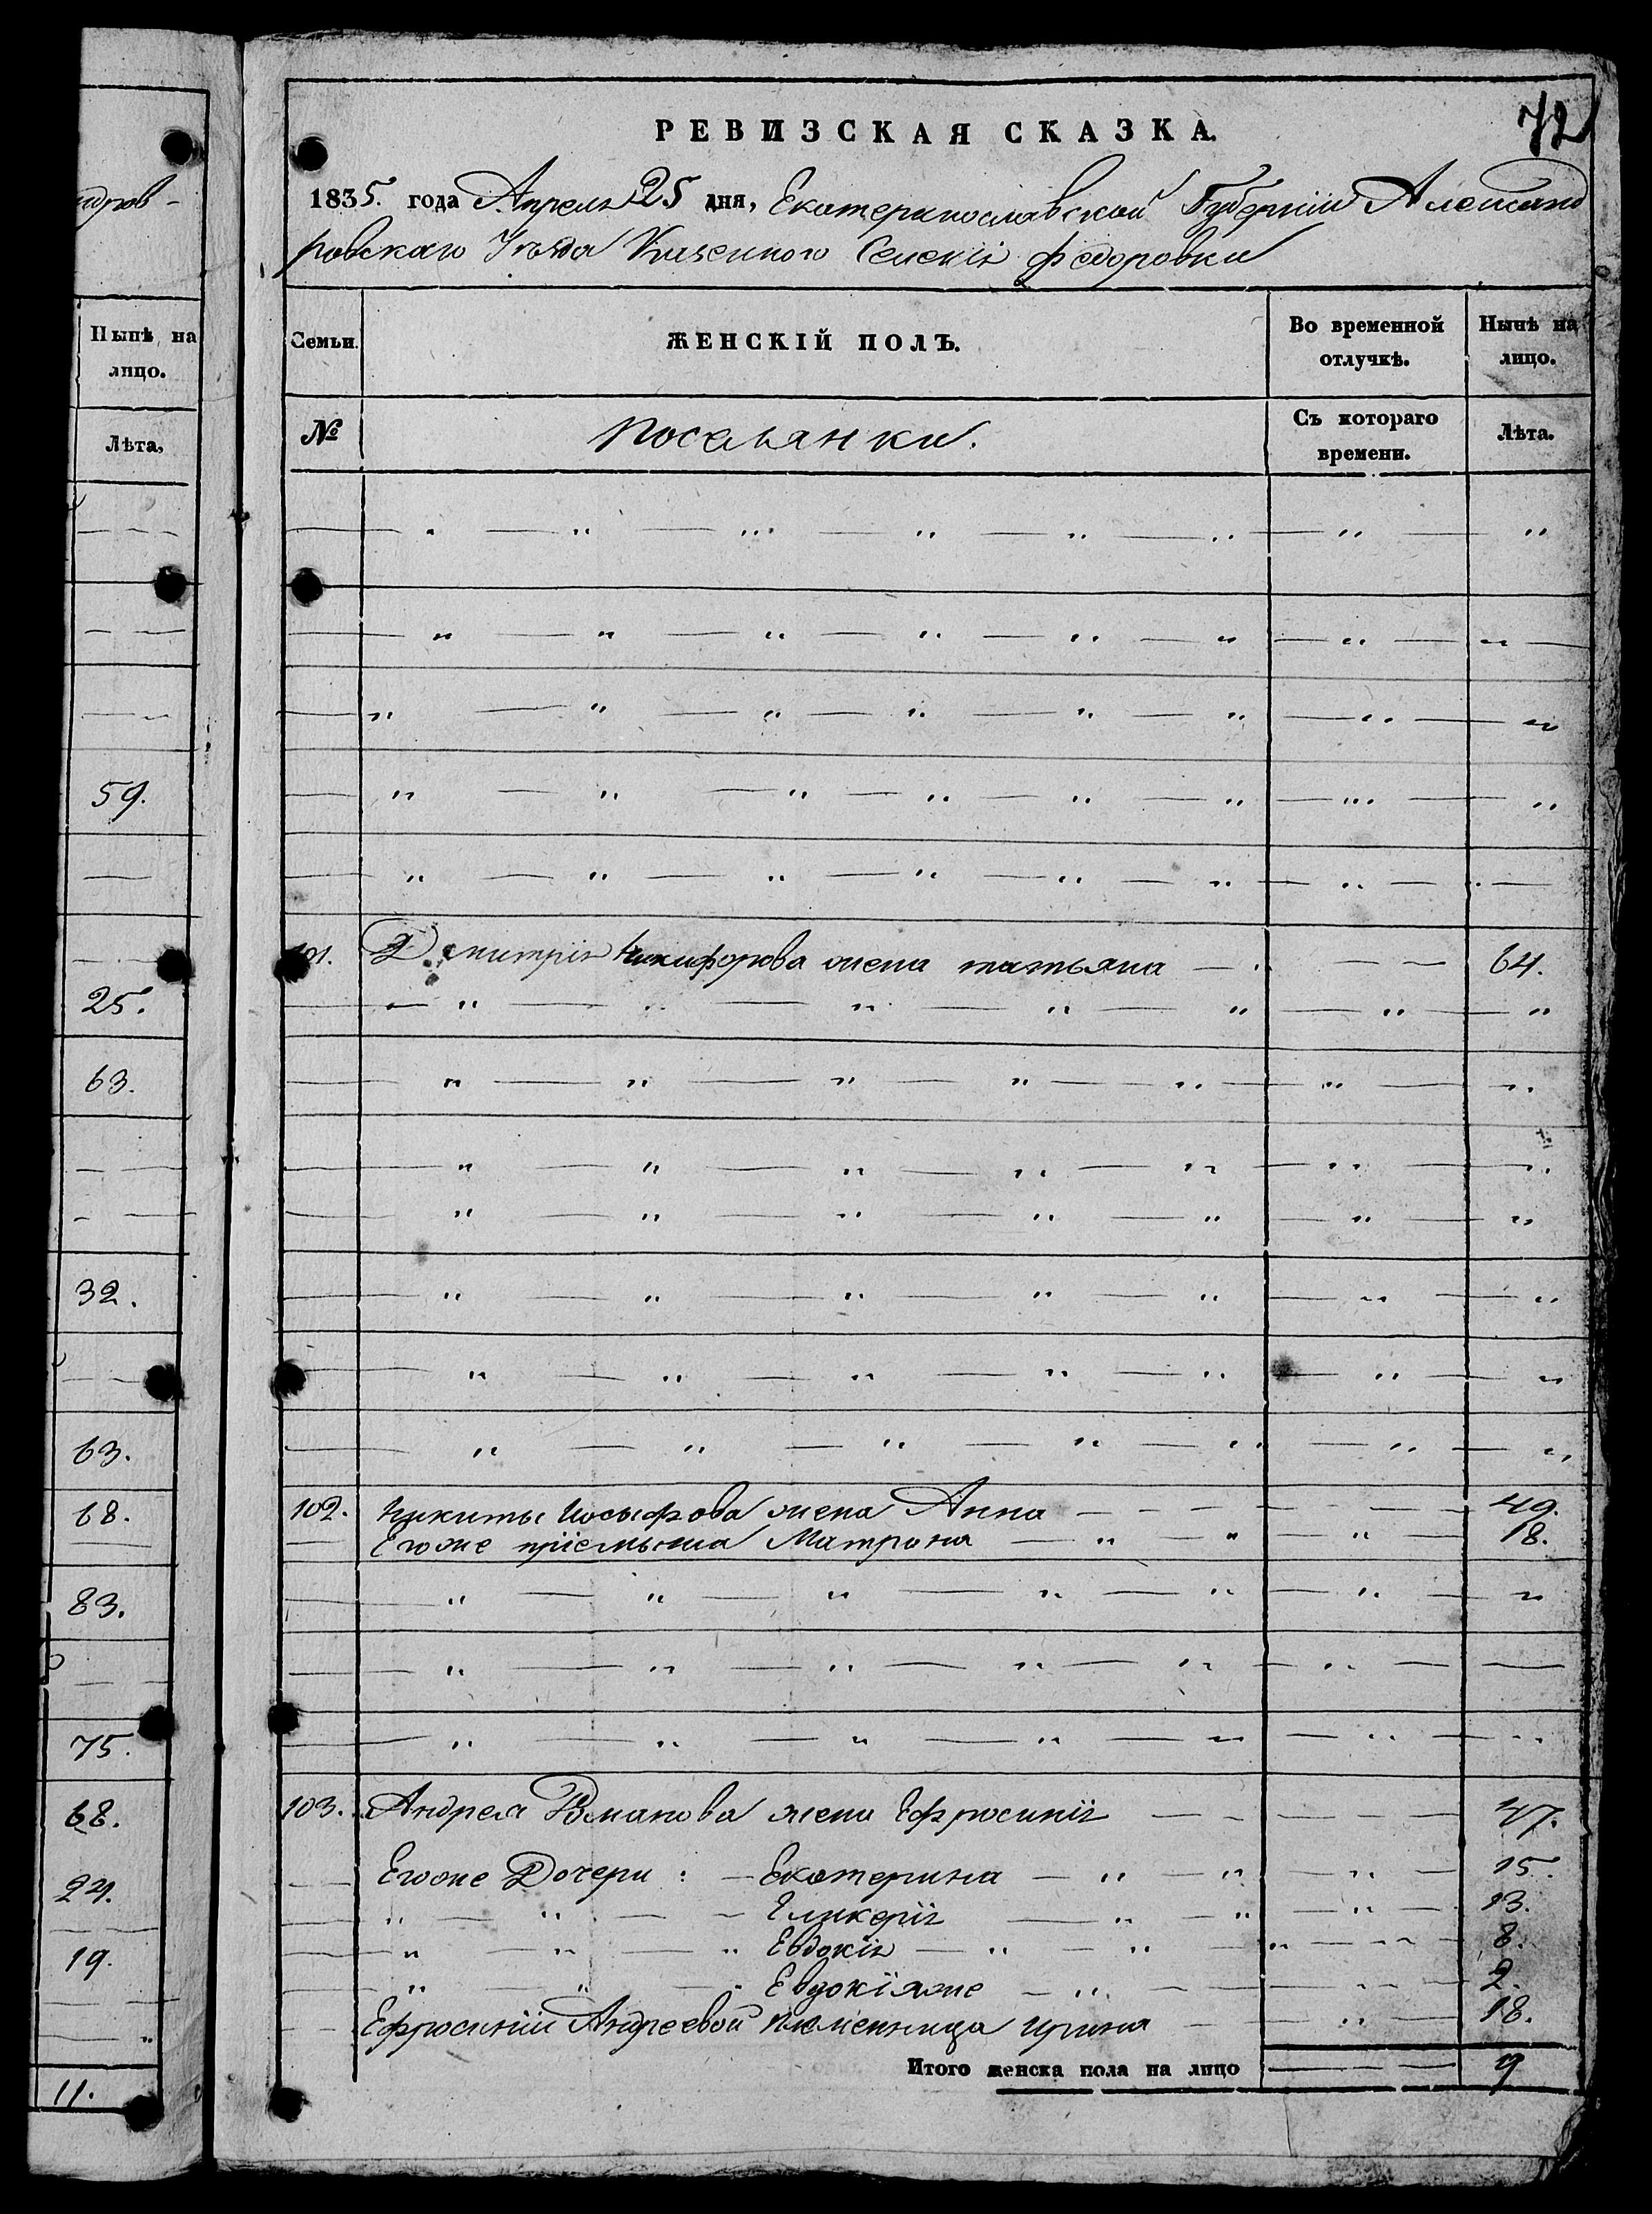 ндров-
Нынѣ на
лицо.
Лѣта,
59.
25.
63.
32.
63.
68.
83.
75.
68.
24.
19.
11.
72
РЕВИЗСКАЯ СКАЗКА.
1835. года Апреля 25 дня, Екатеринославской Губернии Александ
ровскаго Уезда Казенного Селения Федоровки
Семьи.
ЖЕНСКІЙ ПОЛЪ.
Во временной
отлучкѣ.
Нынѣ на
лицо.
№
Поселянки.
Съ котораго
времени.
Лѣта.
101. Дмитрия Никифорова жена татьяна 64.
102. Никиты Иосыфова жена Анна 49.
Егоже приемыша Матрона 18.
103. Андрея Романова жена Ефросиния 47.
Егоже Дочери: Екатерина 15.
Гликерія 13.
Евдокія 8.
Евдокіяже 2.
Ефросинии Андреевой племенница Ирина 18.
Итого женска пола на лицо 9